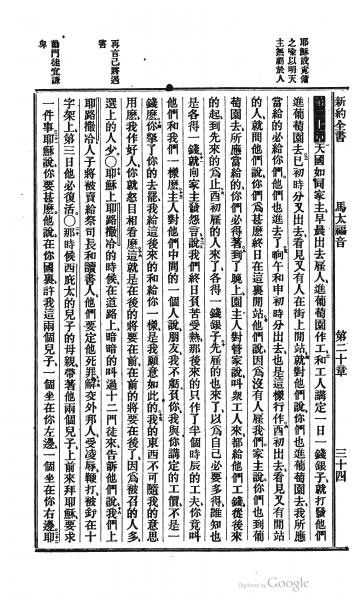 新約全書　馬太福音　第二十章　三十四
耶穌設
之喻以明天
主無虧於人
天國如同家主、早晨出去雇人、進葡萄園作工、和工人講定一日一錢銀子、就打發他們
進葡萄園去、巳初時分、又出去、看見又有人在街上閒站、就對他們說、你們也進葡萄園去、我所應
當給的必給你們、他們也進去了、晌午和申初時分出去、也是這樣行作、酉初出去、看見又有閒站
的人、就問他們說、你們爲甚麽終日在這裏閒站、他們說、因爲沒有人雇我們、家主說、你們也到葡
萄園去、所應當給的、你們必得著、到了晚上、園主人對管家說、叫衆工人來、都給他們工錢、從後來
的起、到先來的爲止、酉初雇的人來了、各得一錢銀子、先雇的也來了、以爲自己必要多得、誰知也
是各得一錢、就向家主發怨言、說、我們終日負苦受熱、那後來的只作了半個時辰的工夫、你竟叫
他們和我們一樣麽、主人對他們中間的一個人說、朋友、我不虧負你、我與你講定的工價、不是一
錢麽、你拏了你的去罷、我給這後來的和給你一樣、是我願意如此的、我的東西、不可隨我的意思
用麽、我作好人、你就怒目相看麽、這就是在後的將要在前、在前的將要在後了、因爲被召的人多、
再言己將遇
害
選上的人少、○耶穌上耶路撒冷的時候、在道路上、暗暗的叫過十二門徒來、告訴他們說、我們上
耶路撒冷、人子將被賣給祭司長和讀書人、他們要定他死罪、解交外邦人、受凌辱鞭打、被釘在十
勸門徒宜謙
卑
字架上、第三日他必復活、○那時候、西庇太的兒子的母親、帶著他兩個兒子、上前來拜耶穌、要求
一件事、耶穌說、你要甚麽、他說、在你國裏、許我這兩個兒子、一個坐在你左邊、一個坐在你右邊、耶
Digitized by Google